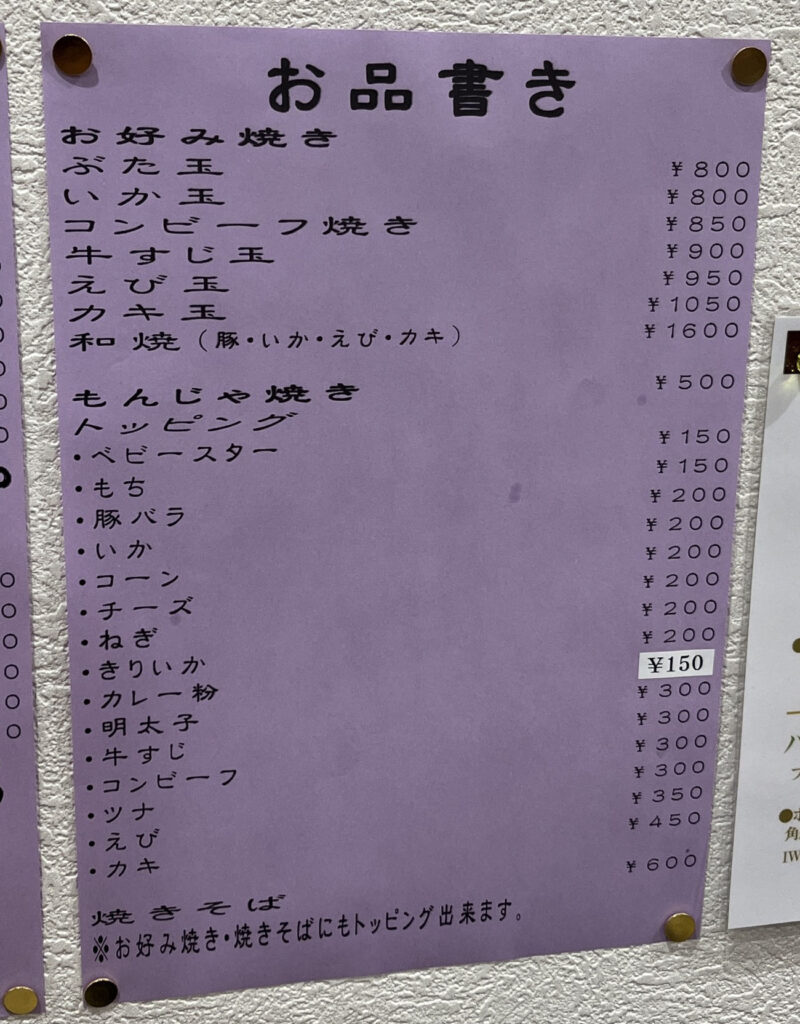 お品書き
お好み焼き
ぶた玉 ¥800
いか玉 ¥800
コンビーフ焼き ¥850
牛すじ玉 ¥900
えび玉 ¥950
カキ玉 ¥1050
和焼（豚・いか・えび・カキ） ¥1600
もんじゃ焼き ¥500
トッピング
・ベビースター ¥150
・もち ¥150
・豚バラ ¥200
・いか ¥200
・コーン ¥200
・チーズ ¥200
・ねぎ ¥200
・きりいか ¥200
・カレー粉 ¥150
・明太子 ¥300
・牛すじ ¥300
・コンビーフ ¥300
・ツナ ¥300
・えび ¥350
・カキ ¥450
焼きそば ¥600
※お好み焼き・焼きそばにもトッピング出来ます。